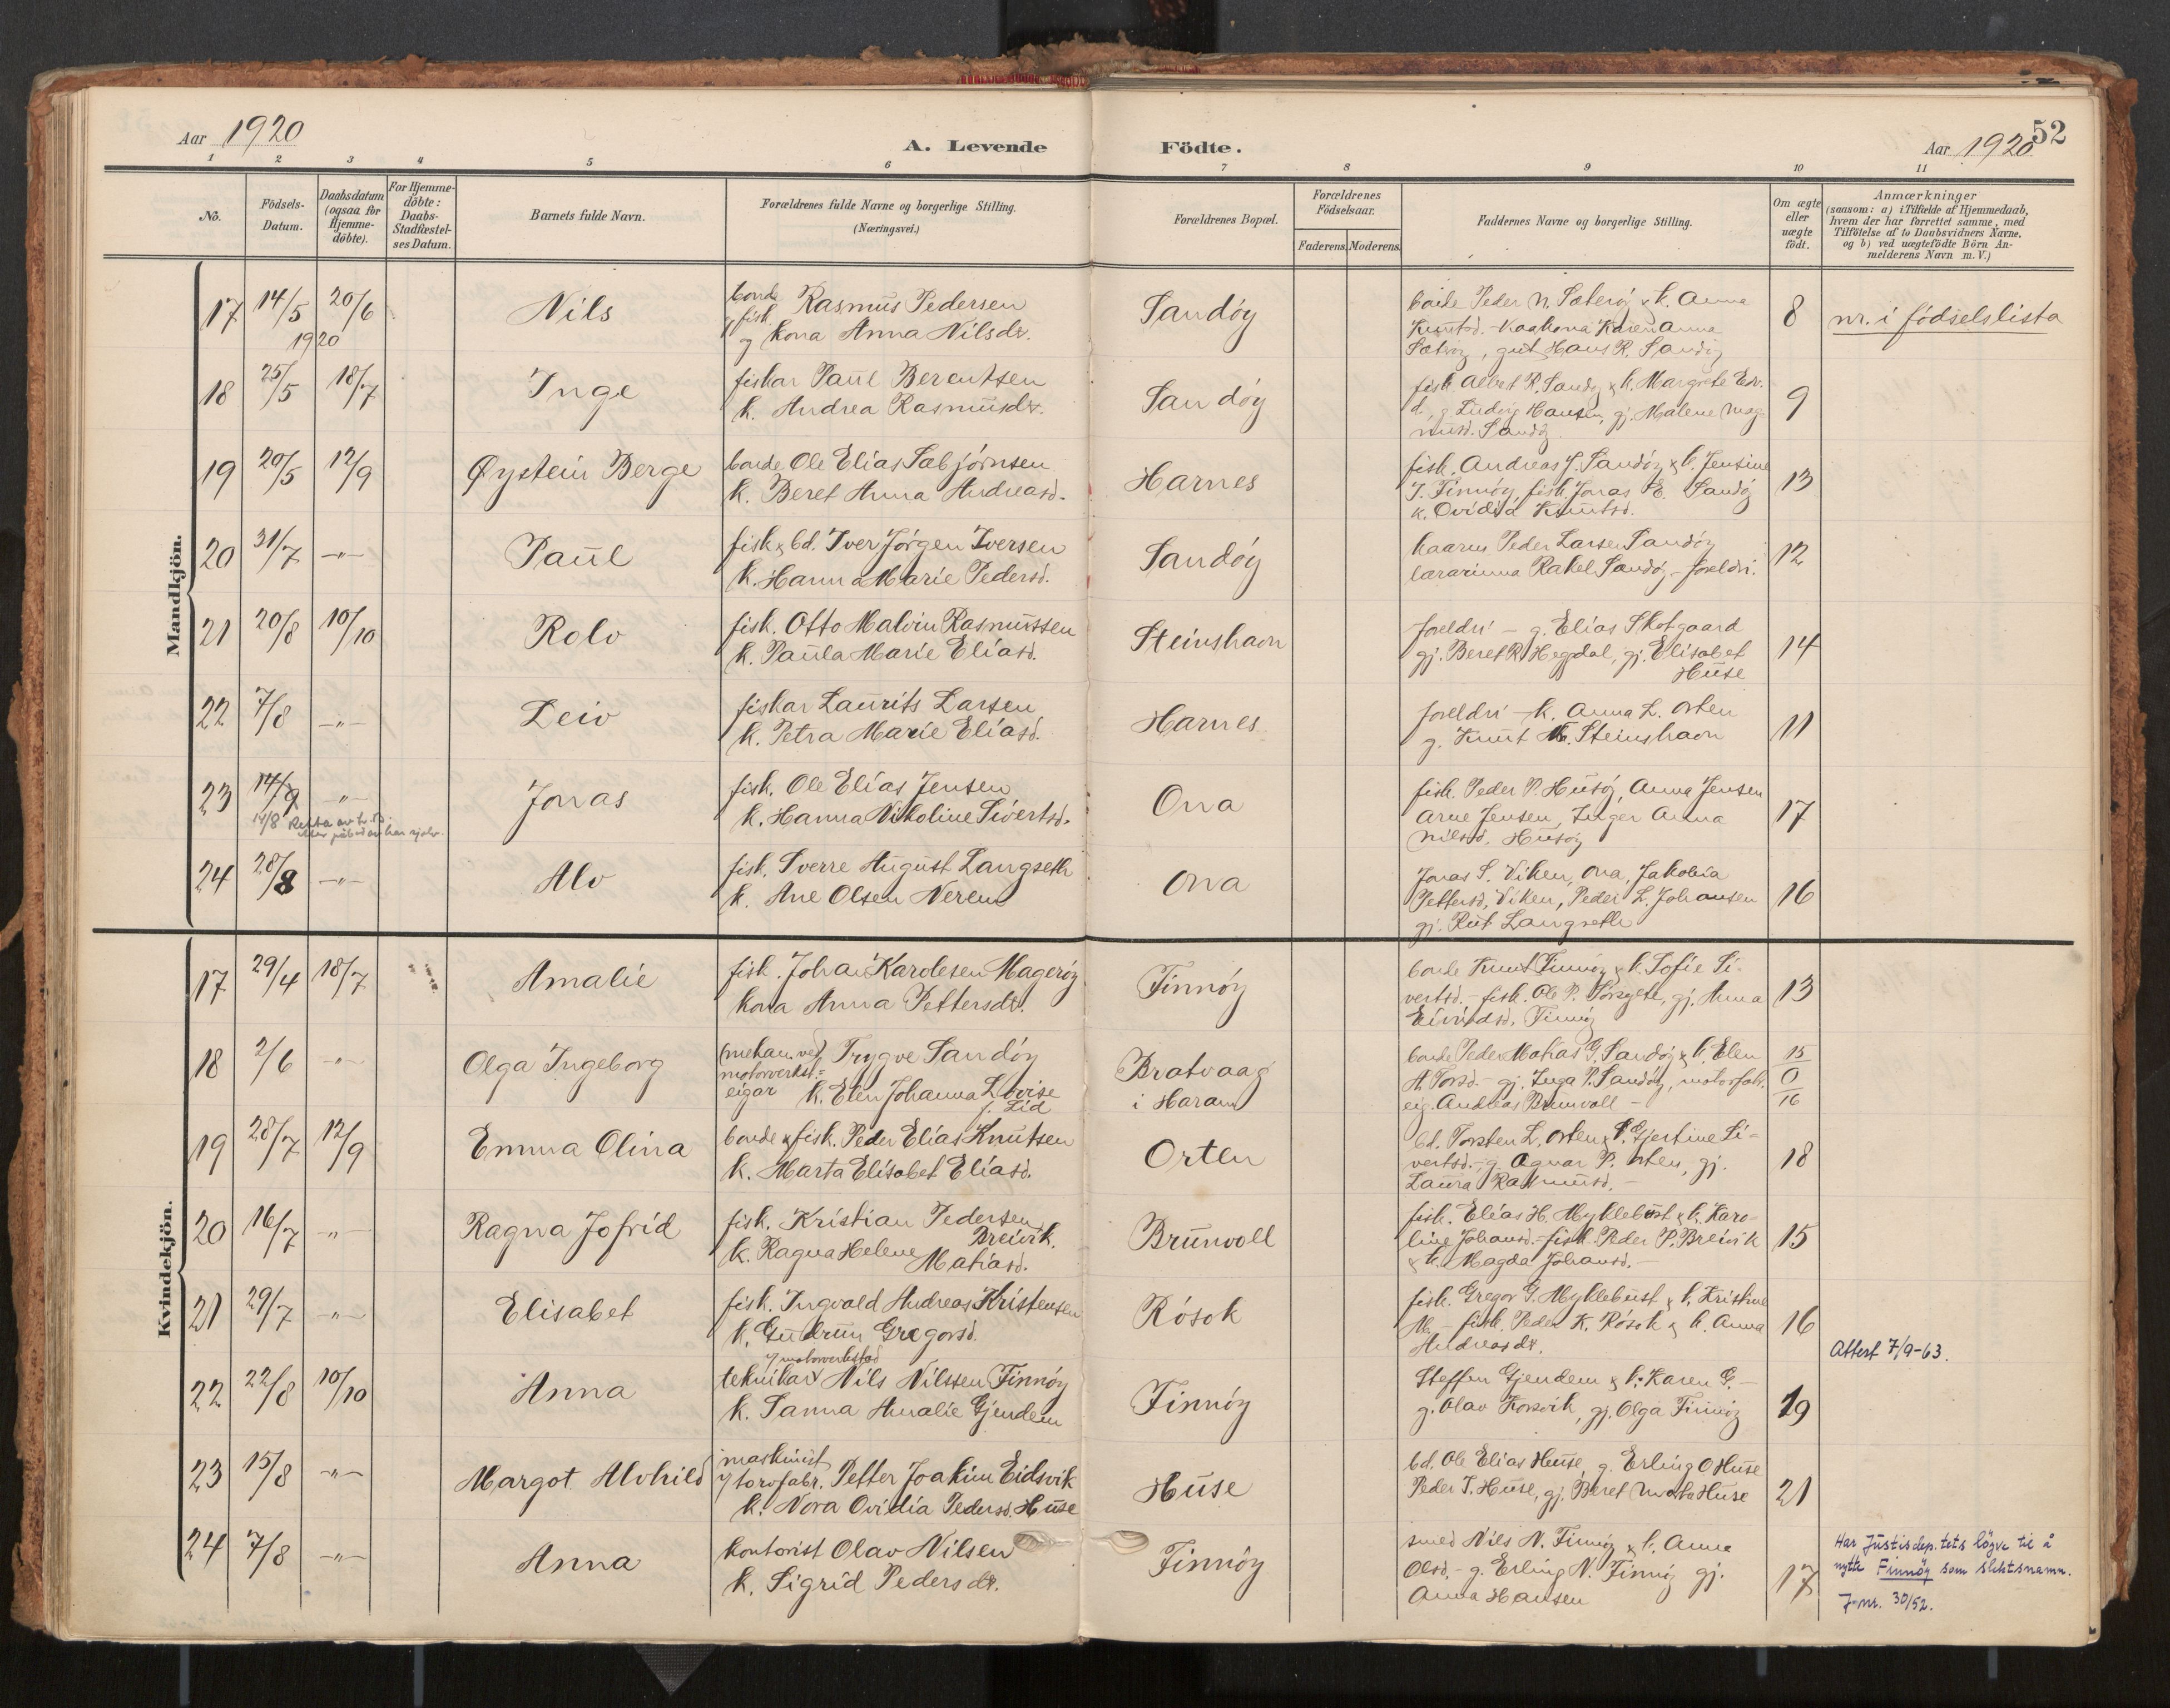 Aar 1920
A. Levende Födte.
Aar 1920
52
1 2 3 4 5 6 7 8 9 10 11
No.
Födsels-Datum.
Daabsdatum (ogsaa for Hjemme-döbte).
For Hjemme-döbte: Daabs-Stadfæstel-ses Datum.
Barnets fulde Navn.
Forældrenes fulde Navne og borgerlige Stilling.
(Næringsvei.)
Forældrenes Bopæl.
Forældrenes Födselsaar.
Faderens. Moderens.
Faddernes Navne og borgerlige Stilling.
Om ægte eller uægte födt.
Anmærkninger
(saasom: a) i Tilfælde af Hjemmedaab,
hvem der har forrettet samme, med
Tilföielse af to Daabsvidners Navne.
og b) ved uægtefödte Börn An-
melderens Navn m. V.)
Mandkjön.
17 14/5 20/6 Nils
1920
bonde
y fisk Rasmus Pedersen
y kona Anna Nilsdr.
Sandöy
bonde Peder N. Sæteröy & k. Anna
Knutsd. - Kaarkona Karen Anna
Sæteröy, gut Hans R. Sandöy
8
nr. i födselslista
18 25/5 18/7 Inge
fiskar Paul Berentsen
k. Andrea Rasmusdr.
Sandöy
fisk Albert R. Sandöy & k. Margrete Edv.
d., g. Ludvig Hansen, gj. Malene Mag-
nusd. Sandöy
9
19 20/5 12/9 Øystein Berge
bonde Ole Elias Sæbjörnsen
k. Beret Anna Andreasd.
Harnes
fisk. Andreas J. Sandöy & k. Jensine
J. Finnöy, fisk. Jonas E. Sandöy
k. Ovidia Knutsd.
13
20 31/7 -"- Paul
fisk & bd. Iver Jörgen Iversen
k. Hanna Marie Pedersd.
Sandöy
kaarm Peder Larsen Sandöy
lærarinna Rakel Sandöy - foreldri.
12
21 20/8 10/10 Rolv
fisk. Otto Malvin Rasmussen
k. Paula Marie Eliasd.
Steinshavn
foreldri - g. Elias Skotgaard
gj. Beret R. Hegdal, gj. Elisabet
Huse
14
22 7/8 -"- Leiv
fiskar Laurits Larsen
k. Petra Marie Eliasd.
Harnes
foreldri - k. Anna L. Orten
g. Knut M. Steinshavn
11
23 14/9 -"- Jonas
14/8
fisk. Ole Elias Jensen
k. Hanna Nikoline Sivertsd.
Ona
fisk. Peder P. Husöy, Anna Jensen
Arne Jensen, Inger Anna
Nilsd. Husöy
17
24 28/8 -"- Alv
fisk. Sverre August Langseth
k. Ane Olsen Nerem
Ona
Jonas S. Viken, Ona, Jakobia
Pettersd. Viken, Peder L. Johansen
gj. Rut Langseth
16
Kvindekjön.
17 29/4 18/7 Amalie
fisk. Johan Karolesen Mageröy
kona Anna Pettersdr.
Finnöy
bonde Knut Finnöy & k. Sofie Si-
vertsd. - fisk. Ole P. , gj. Anna
Eivindsd. Finnöy
13
18 2/6 -"- Olga Ingeborg
(mekan. ved) Trygve Sandöy
motorverkst.=
eigar k. Elen Johanna Lovise
f. Lid
Bratvaag
i Haram
bonde Peder Matias G. Sandöy & k. Elen
A. Torsd. - gj. Inga P. Sandöy, motorfabr.
eig. Andreas Brunvoll -
15
0
16
19 28/7 12/9 Emma Olina
bonde & fisk. Peder Elias Knutsen
k. Marta Elisabet Eliasd.
Orten
bd. Torsten L. Orten & k. Gjertine Si-
vertsd. - g. Agnar P. Orten, gj.
Laura Rasmusd. -
18
20 16/7 -"- Ragna Jofrid
fisk. Kristian Pedersen
Breivik.
k. Ragna Helene Matiasd.
Brunvoll
fisk. Elias H. Myklebust & k. Karo-
line Johansd. - fisk. Peder P. Breivik
& k. Magda Johansd. -
15
21 29/7 -"- Elisabet
fisk. Ingvald Andreas Kristensen
k. Gudrun Gregorsd.
Rösok
fisk. Gregor G. Myklebust & k. Kristine
M. - fisk. Peder K. Rösok & k. Anna
Andreasdr.
16
22 22/8 10/10 Anna
y motorverkstad
teknikar Nils Nilssen Finnöy
k. Sanna Amalie Gjendem
Finnöy
Steffen Gjendem & k. Karen G. -
g. Olav Korsvik, gj. Olga Finnöy
19
Attest 7/9-63.
23 15/8 -"- Margot Alvhild
maskinist
y torvfabr. Petter Joakim Eidsvik
k. Nora Ovidia Pedersd. Huse
Huse
bd. Ole Elias Huse, g. Erling O Huse
Peder I. Huse, gj. Beret Marta Huse
21
24 7/8 -"- Anna
kontorist Olav Nilsen
k. Sigrid Pedersdr.
Finnöy
smed Nils N. Finnöy & k. Anna
Olsd. - g. Erling N. Finnöy gj.
Anna Hansen
17
Har Justisdep.tets löyve til å
nytte Finnöy som slektsnamn.
J.nr. 30/52.